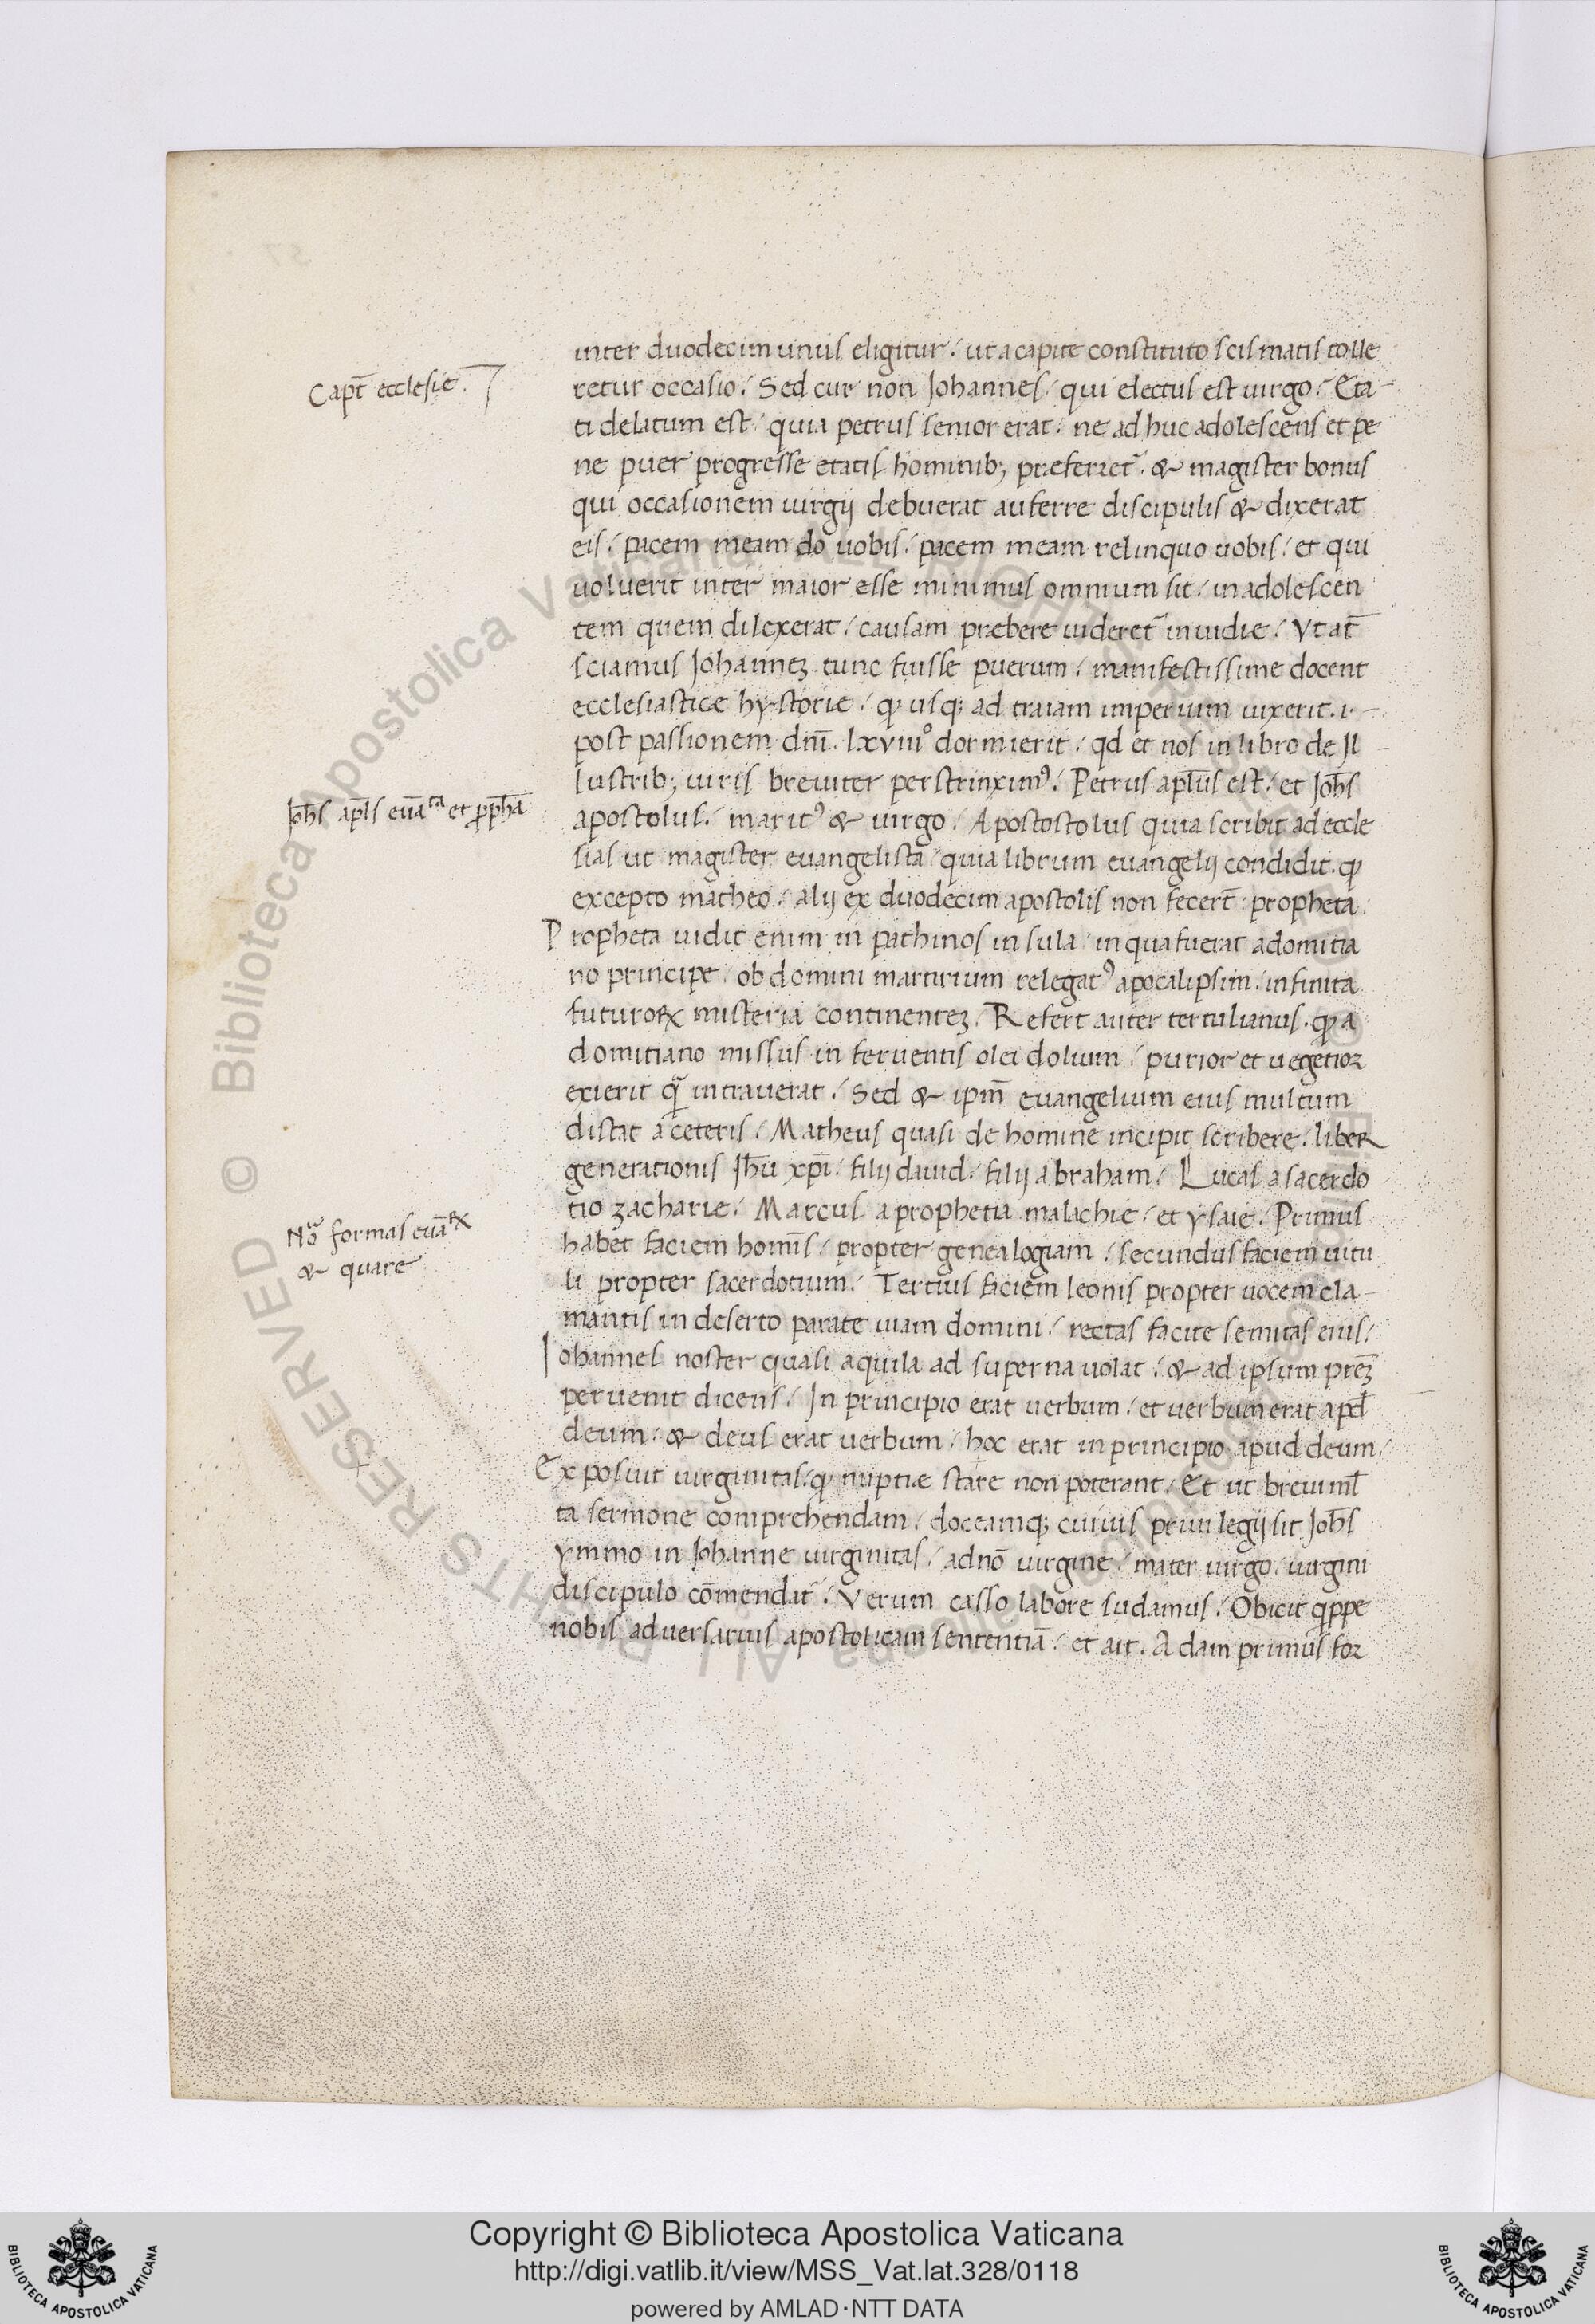 inter duodecim unus eligitur / ut a capite constituto scismatis tolle
Capt̄ ecclesie.
retur occasio / Sed cur non Johannes / qui electus est uirgo / Eta-
ti delatum est / quia petrus senior erat / ne ad huc adolescens et pe
ne puer progresse etatis hominib; præferret̄ . & magister bonus
qui occasionem uirgij debuerat auferre discipulis & dixerat
eis / pacem meam do uobis / pacem meam relinquo uobis / et qui
uoluerit inter maior esse minimus omnium sit / in adolescen
tem quem dilexerat / causam præbere uideret̄ inuidie / Vt at̄
sciamus Johannẽ tunc fuisse puerum / manifestissime docent
ecclesiasticæ hystorie / ꝙ usq; ad traiam imperium uixerit . i-
post passionem dn̄i . lxviii° dormierit / qd et nos in libro de Jl-
lustrib; uiris breuiter perstrinximꝰ / Petrus apl̄us est / et Joh̄s
Joh̄s apl̄s euāta et ꝓph̄a
apostolus / maritꝰ & uirgo / Apostostolus quia scribit ad eccle
sias ut magister euangelista / quia librum euangelij condidit . ꝙ
excepto matheo / alij ex duodecim apostolis non fecert̄ : propheta /
Propheta uidit enim in pathinos insula / in qua fuerat a domitia
no principe / ob domini martirium relegatꝰ apocalipsim / infinita
futuroꝝ misteria continentẽ / Refert auter tertulianus . ꝙ a
domitiano missus in feruentis olei dolium / purior et uegetior
exierit qᷓ intrauerat / Sed & ipm̄ euangelium eius multum
distat a ceteris / Matheus quasi de homine incipit scribere / liber
generationis Jh̄u xp̄i / filij dauid / filij abraham / Lucas a sacerdo
tio zacharie / Marcus a prophetia malachie / et ysaie / Primus
No formas euāꝝ
& quare
habet faciem homīs / propter genealogiam / secundus faciem uitu
li propter sacerdotium / Tertius faciem leonis propter uocem cla-
mantis in deserto parate uiam domini / rectas facite semitas eius /
Johannes noster quasi aquila ad superna uolat / & ad ipsum prẽ
peruenit dicens / In principio erat uerbum / et uerbum erat apd̄
deum / & deus erat uerbum / hoc erat in principio apud deum /
Exposuit uirginitas / ꝙ nuptiæ stare non poterant / Et ut breui ml̄
ta sermone comprehendam / doceamq; cuiuis priuilegij sit Joh̄s
ymmo in Johanne uirginitas / a dnō uirgine / mater uirgo / uirgini
discipulo cōmendat̄ / Verum casso labore sudamus / Obicit q̄ppe
nobis aduersarius apostolicam sententiā / et ait . Adam primus for
© Biblioteca Apostolica Vaticana ALL RIGHTS RESERVED
Copyright © Biblioteca Apostolica Vaticana
http://digi.vatlib.it/view/MSS_Vat.lat.328/0118
powered by AMLAD·NTT DATA
BIBLIOTECA APOSTOLICA VATICANA
BIBLIOTECA APOSTOLICA VATICANA